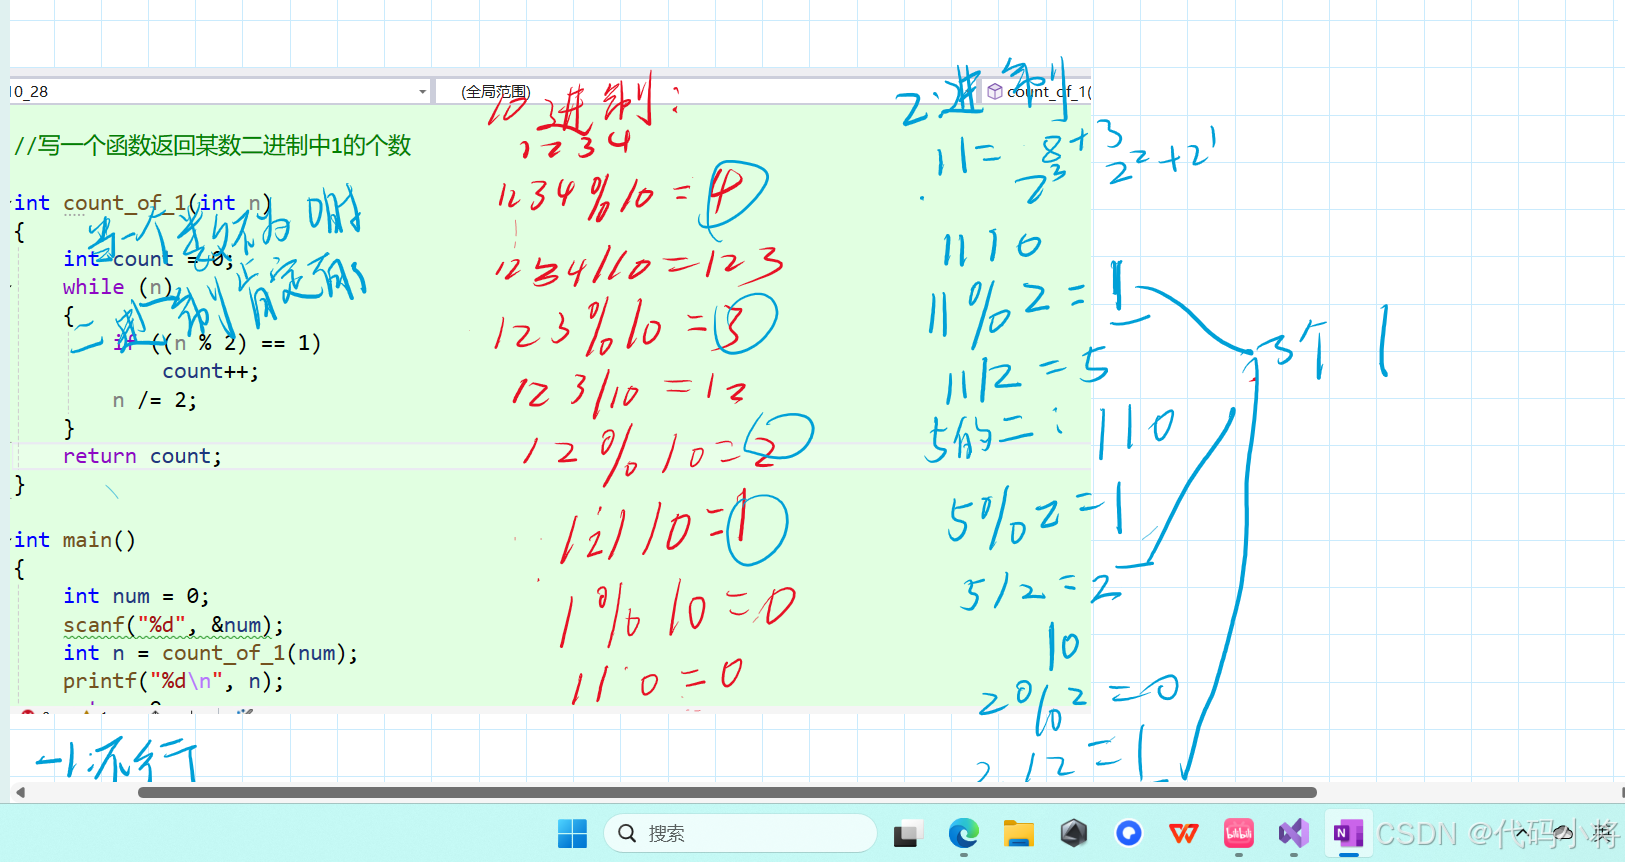 10_28
(全局范围)
count_of_1(
//写一个函数返回某数二进制中1的个数
int count_of_1(int n)
{
int count = 0;
while (n)
{
if ((n % 2) == 1)
count++;
n /= 2;
}
return count;
}
int main()
{
int num = 0;
scanf("%d", &num);
int n = count_of_1(num);
printf("%d\n", n);
当一个数不为0时
二进制肯定有
-1:不行
10进制:
1234
1234%10=4
1234/10=123
123%10=3
123/10=12
12%10=2
12/10=1
1%10=0
1/10=0
2进制
11= 8+3
2³ 2²+2¹
1110
11%2=1
11/2=5
5的二:110
5%2=1
5/2=2
10
2%2=0
2/2=1
3个1
搜索
CSDN @代码小将